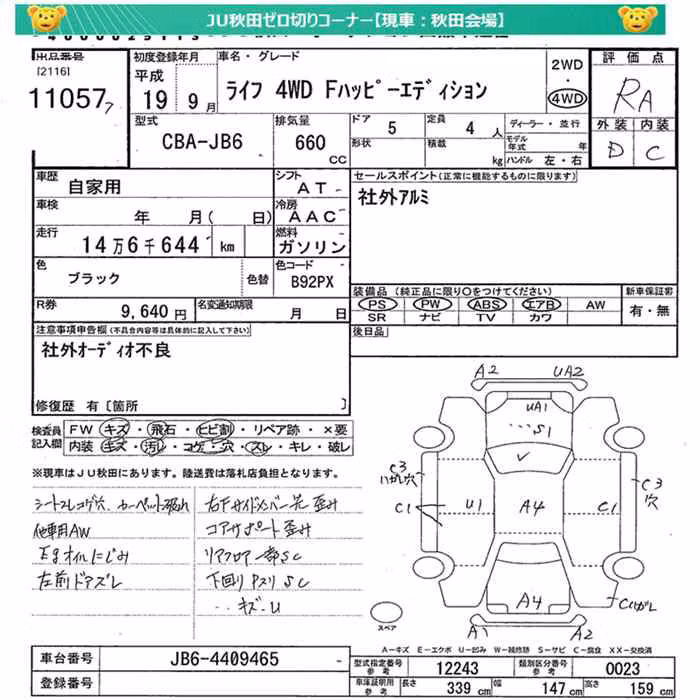 JU秋田ゼロ切りコーナー【現車：秋田会場】
出品番号
[2116]
11057
初度登録年月
平成
19 9月
車名・グレード
ライフ 4WD Fハッピーエディション
2WD
・
4WD
評価点
RA
外装 内装
D C
型式
CBA-JB6
排気量
660
CC
ドア 5
定員 4 人
形状
積載 kg
ディーラー・並行
モデル年式 年
ハンドル 左・右
車歴
自家用
シフト
AT
車検
年 月( 日)
冷房
AAC
走行
14万6千644 km
燃料
ガソリン
色
ブラック
色替
色コード
B92PX
R券
9,640円
名変通知期限
月 日
セールスポイント(正常に機能するものに限ります)
社外アルミ
装備品 (純正品に限り○をつけてください)
PS PW ABS エアB AW
SR ナビ TV カワ
新車保証書
有・無
後日品
注意事項申告欄(不具合内容等は具体的に記入して下さい)
社外オーディオ不良
修復歴 有 [箇所 ]
検査員記入欄
FW キズ・飛石・ヒビ割・リペア跡・×要
内装 キズ・汚レ・コゲ・穴・スレ・キレ・破レ
※現車はJU秋田にあります。陸送費は落札店負担となります。
シートスレコゲ穴、カーペット破れ
他車用AW
Egオイルにじみ
左前ドアズレ
右Fサイドメンバー先歪み
コアサポート歪み
リアフロア一部SC
下回りPスリSC
キズ・U
A2 UA2
UA1
S1
C3
ハガレ穴
C1
U1
A4
C1
C3
穴
A4
Cハガレ
A1 A2
スペア
A-キズ E-エクボ U-凹み W-補修跡 S-サビ C-腐食 XX-交換済
車台番号
JB6-4409465
登録番号
型式指定番号
参考
12243
類別区分番号
参考
0023
車庫証明用
参考
長さ 339 cm
幅 147 cm
高さ 159 cm